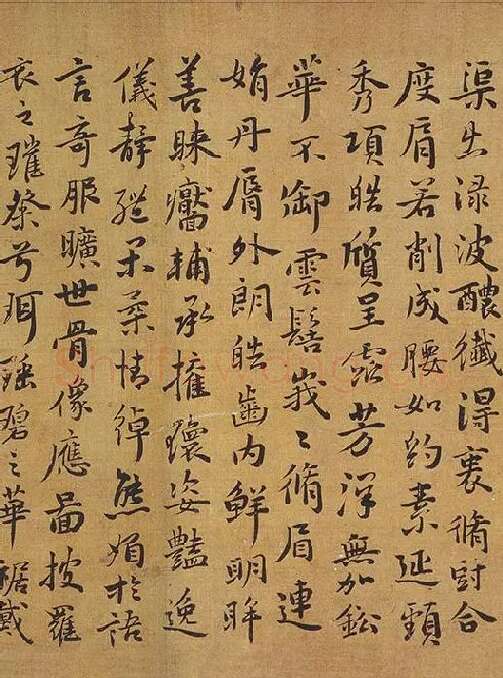 渠出渌波醲纖得衷脩短合
度肩若削成腰如約素延頸
秀項皓質呈露芳澤無加鉛
華不御雲髻峩〻脩眉連
娟丹脣外朗皓齒内鮮明眸
善睞靨輔承權瓌姿豔逸
儀静體閑柔情綽態媚於語
言奇服曠世骨像應圖披羅
衣之璀粲兮珥瑶碧之華裾戴